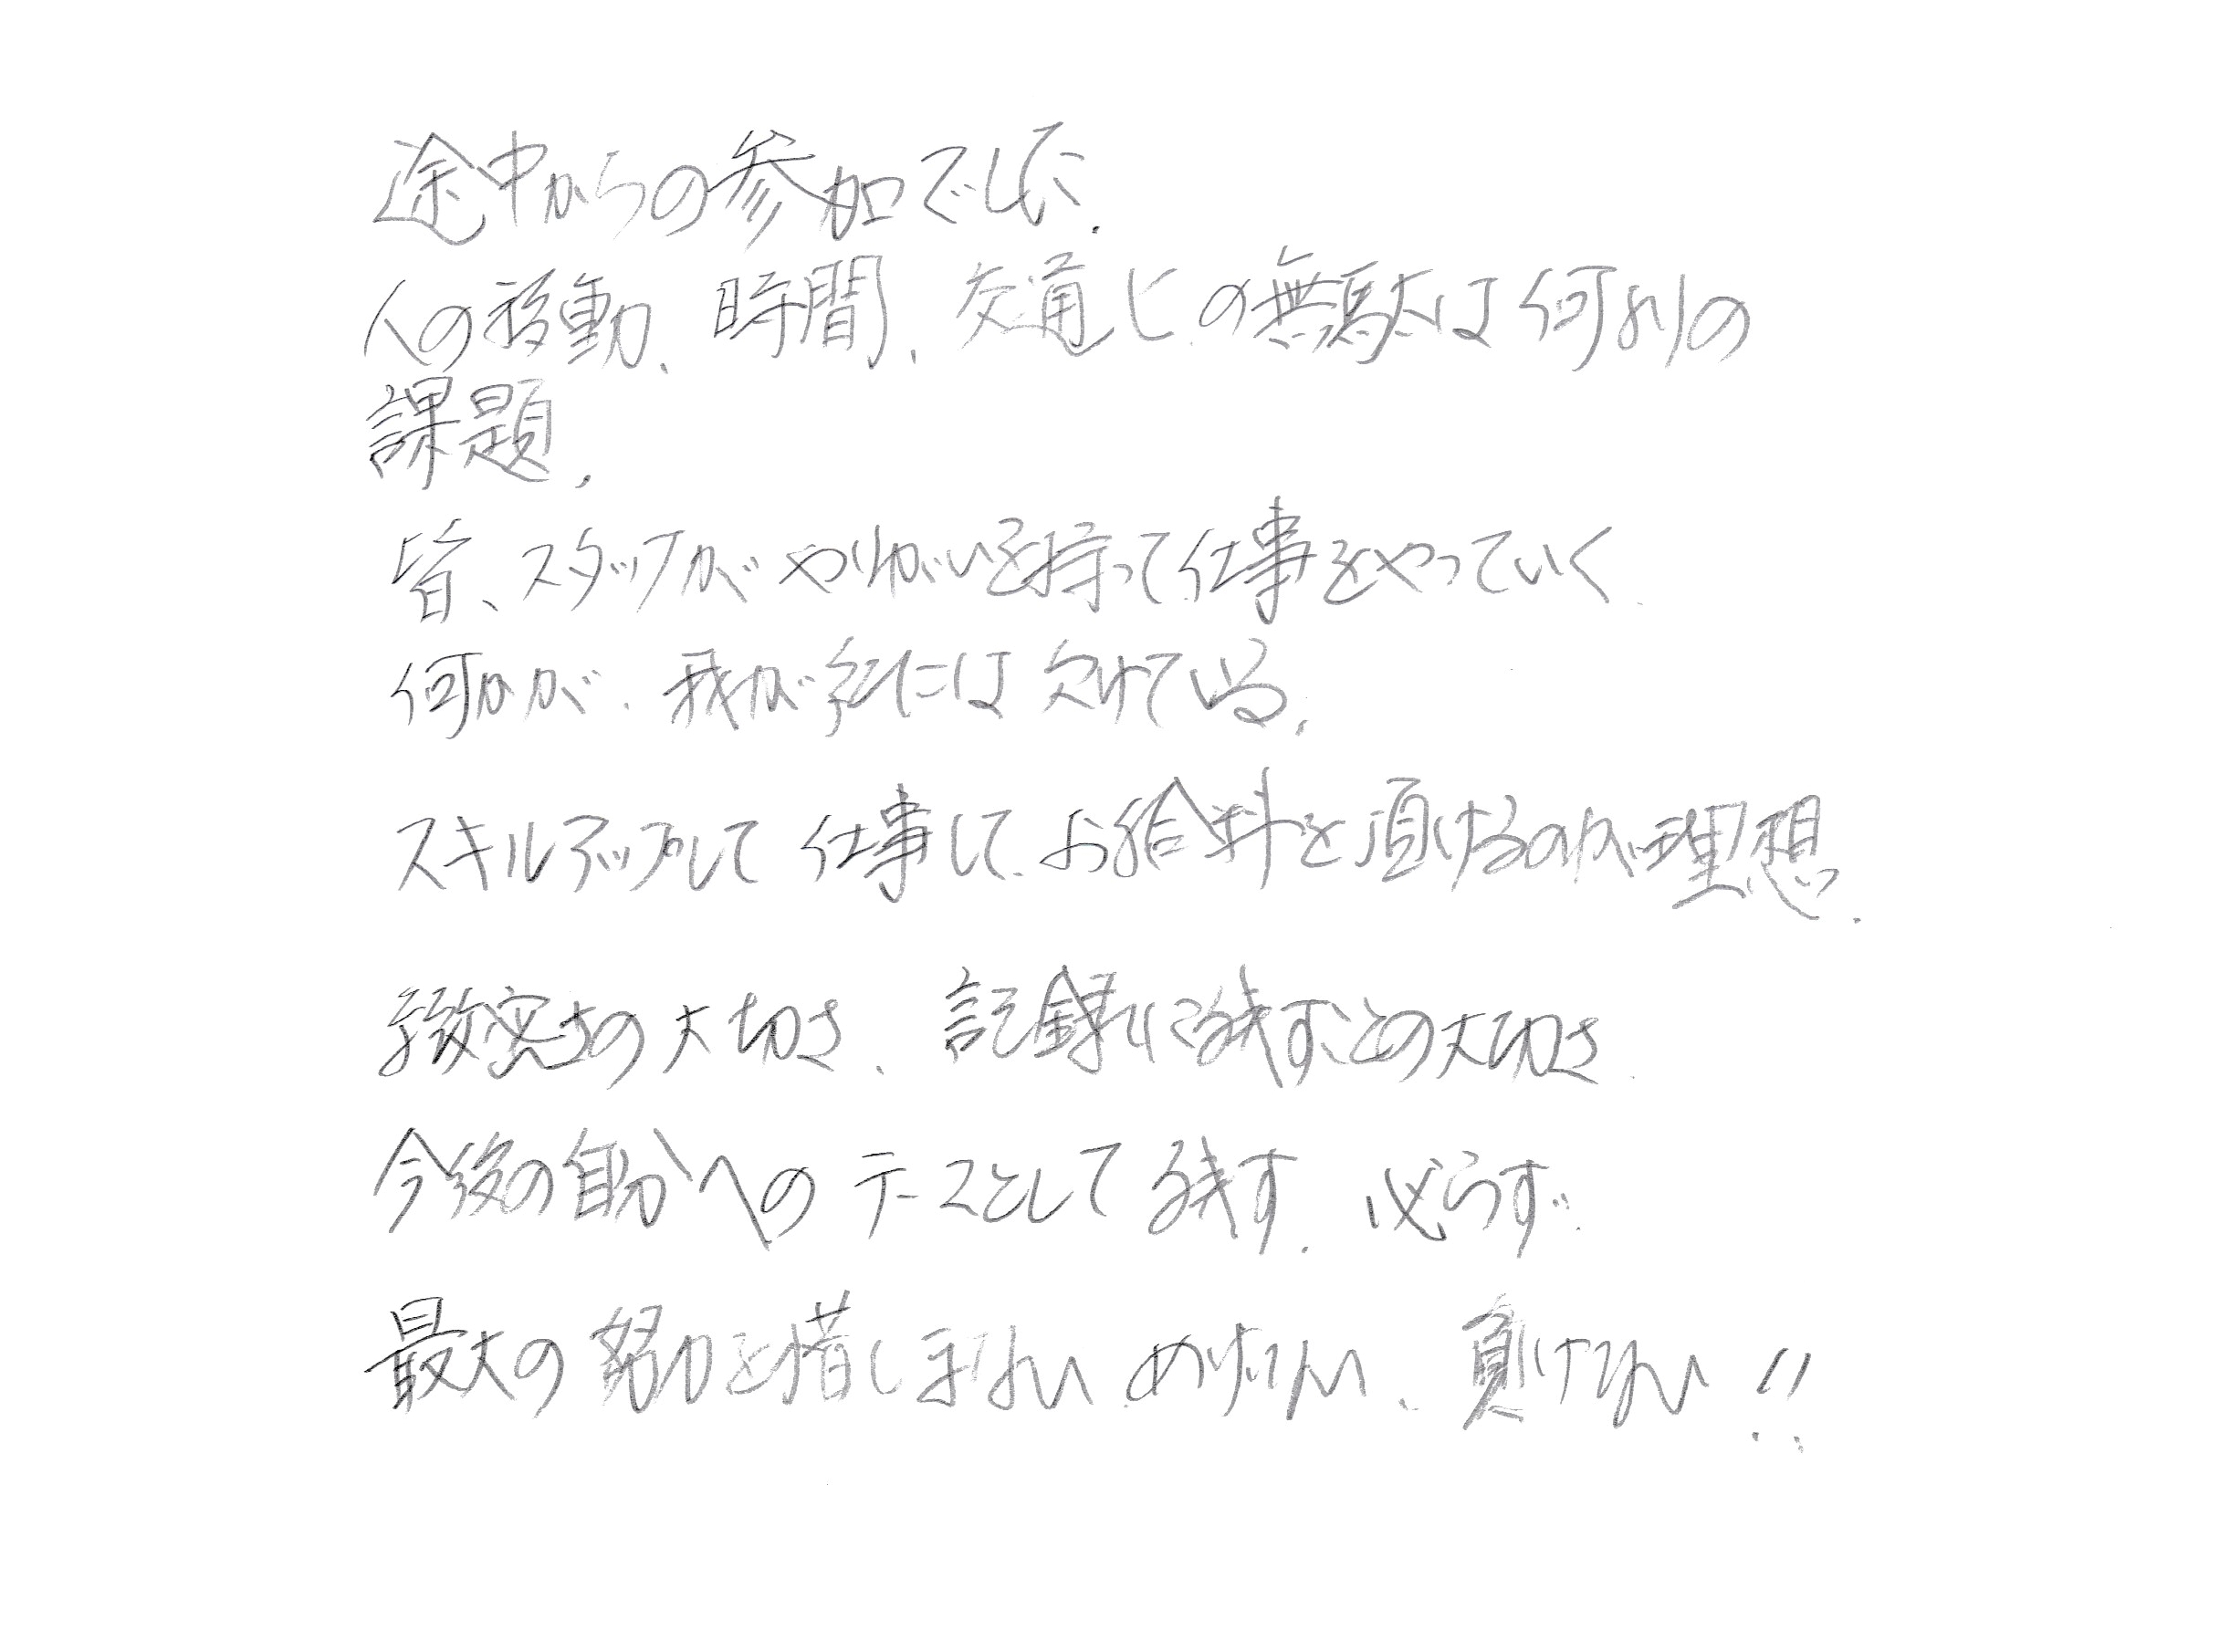 途中からの参加でした.
人の移動、時間、交通ヒの無駄は何よりの
課題.
皆、スタッフがやりがいを持って仕事をやっていく
何かが、我が社には欠けている.
スキルアップして仕事して、お給料を頂けるのが理想.
緻密さの大切さ、記録に残すことの大切さ
今後の自分へのデータとして残す. 必らず.
最大の努力を惜しまない. めげない、負けない!!